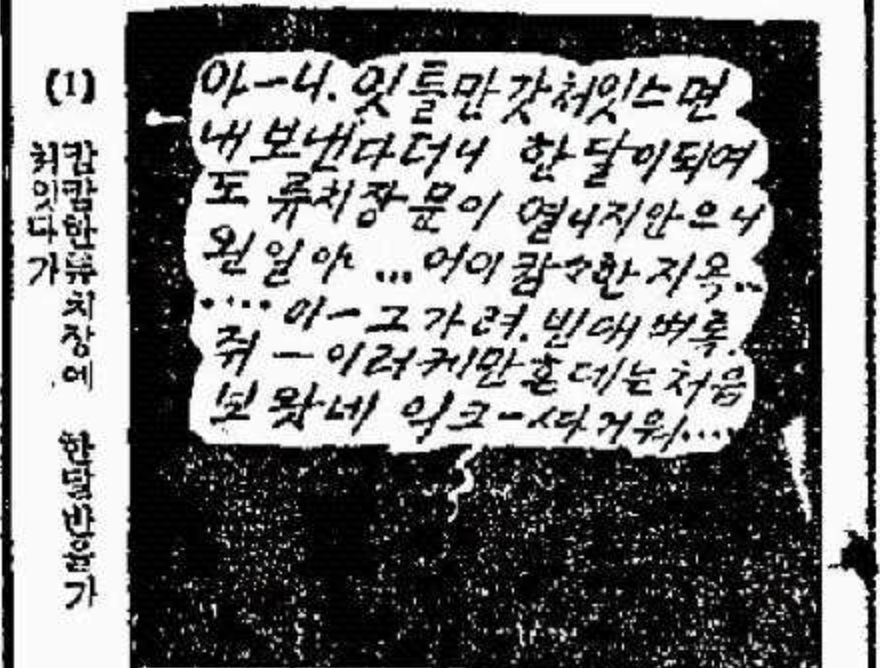 (1)
캄캄한류치장에 한달반을가
처잇다가
아—니. 잇틀만갓처잇스면
내보낸다더니 한달이되여
도 류치장문이 열니지안으니
왼일야 ...어이캄々한지옥..
....아—그가려.빈대벼룩.
쥐—이러케만흔데는처음
보왓네 익크—따거워....